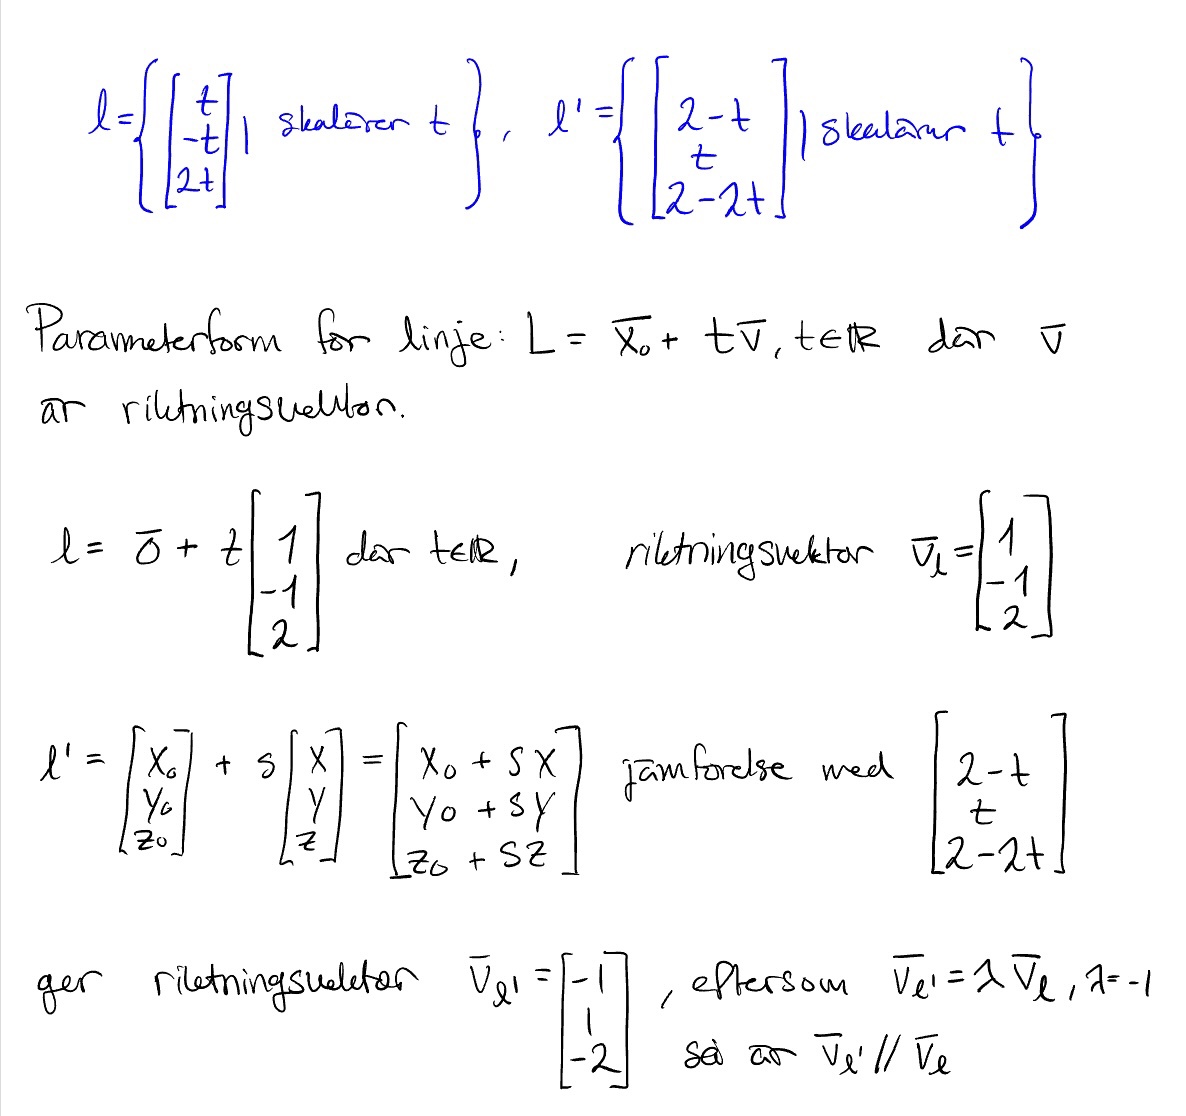 l = { [t; -t; 2t] | skalärer t }, l' = { [2-t; t; 2-2t] | skalärer t }
Parameterform för linje: L = x̄₀ + t v̄, t∈ℝ där v̄
är riktningsvektor.
l = 0̄ + t [1; -1; 2] där t∈ℝ, riktningsvektor v̄ₗ = [1; -1; 2]
l' = [x₀; y₀; z₀] + s [x; y; z] = [x₀ + sx; y₀ + sy; z₀ + sz] jämförelse med [2-t; t; 2-2t]
ger riktningsvektor v̄ₗ' = [-1; 1; -2], eftersom v̄ₗ' = λ v̄ₗ, λ = -1
så är v̄ₗ' // v̄ₗ